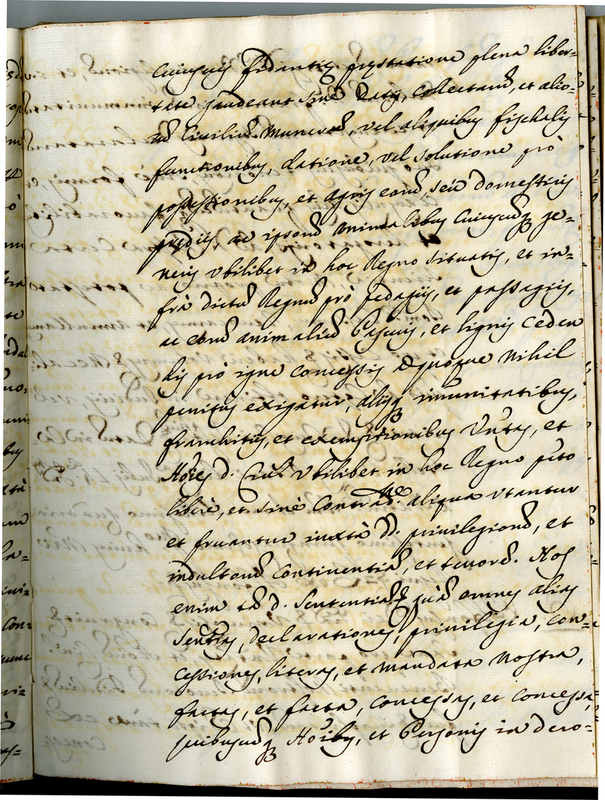 cuiuscuq fidantię pręstatione plena liber-
tate gaudeant sine datijs, collectarũ, et alio-
rũ Civiliũ Munerũ, vel aliquibus fischalijs
functionibus, datione, vel solutione prò
possessionibus, et agris eorũ, seù domesticis
prędijs, ac ipsorũ animalibus cuiuscũq ge-
neris vbilibet in hoc Regno situatis, et in-
frà dictũ Regnũ prò pedagijs, et passagijs,
ac eorũ animaliũ Pascuis, et lignis ceden
dis pro igne concessis quoque nihil
penitus exigatur, alijsq imunitatibus,
franchitijs, et exemptionibus Vntas, et
Hoies d. Ciuit. vbilibet in hoc Regno pnto
liberè, et sinè contradne. aliqua vtantur
et fruantur iuxtà dd. privilegiorũ, et
indultorũ continentiã, et tenorẽ. Nos
enim tã d. sententiã, quã omnes alias
sentias, declarationes, privilegia, con-
cessiones, literas, et mandata nostra,
factas, et facta, concessas, et concessa,
quibusuis Hoibus, et Personis in dero-